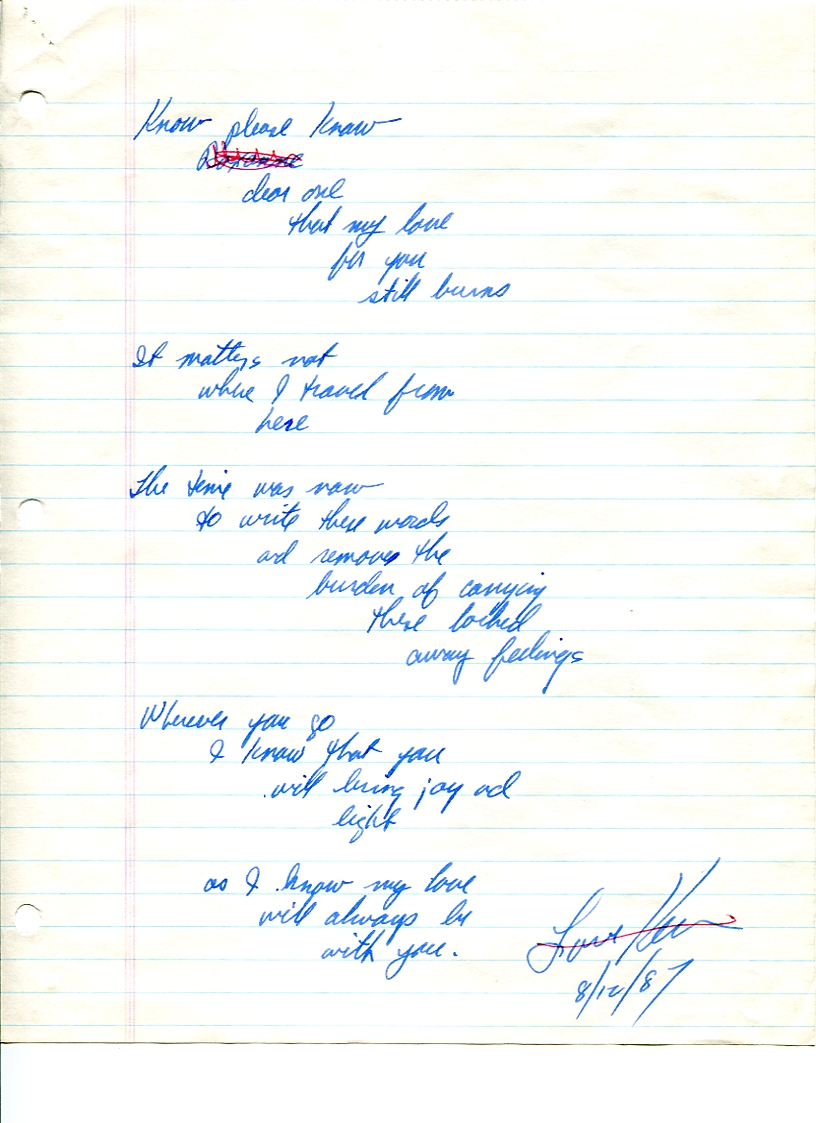 Know please know
dear one
that my love
for you
still burns
It matters not
where I travel from
here
The time was now
to write these words
and remove the
burden of carrying
these locked
away feelings
Wherever you go
I know that you
will bring joy and
light
as I know my love
will always be
with you.
Love Ken
8/12/87